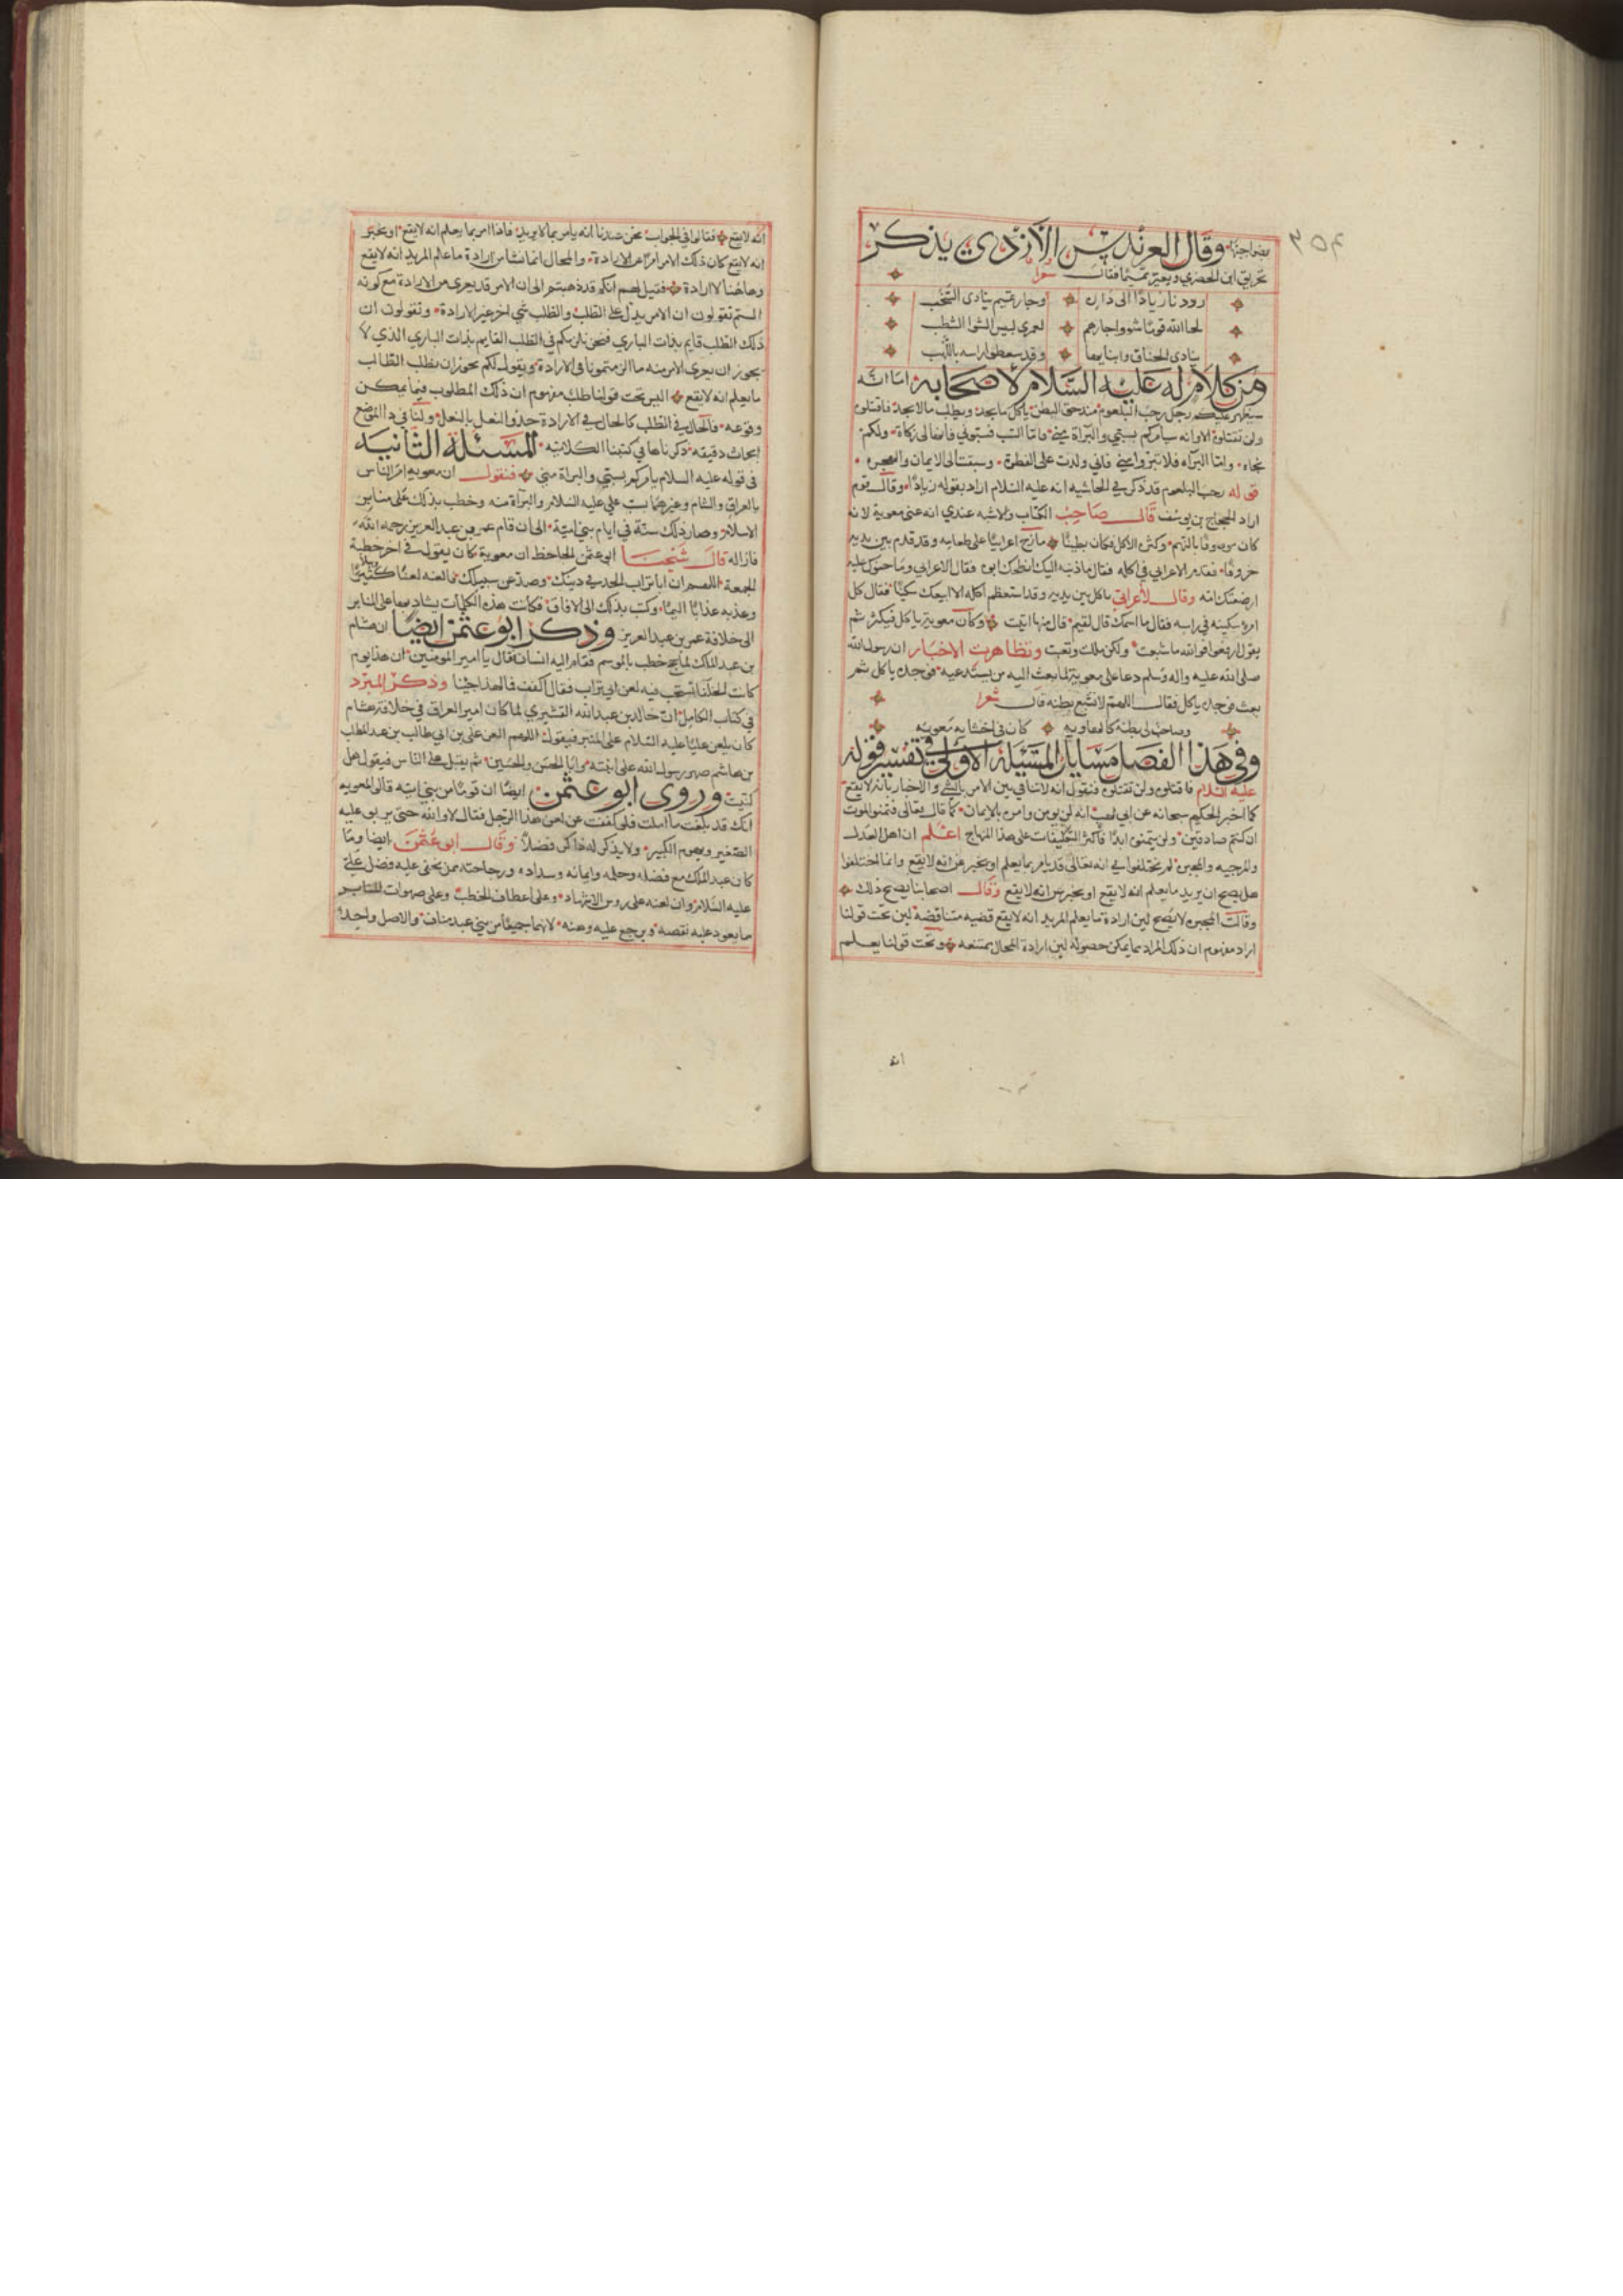 ٣٥٣
بعض اجنه وقال العرندس الازدي يذكر
تحريق ابن الحضرمي ويعير تميما فقال شعرا
رددنا زيادا الى داره وجار تميم ينادى الشجب
لحا الله قوما شووا جارهم لعمرى لبيس الشوا الشطب
ينادى الحناق وابنايها وقد سمطوا راسه باللهب
ومن كلام له عليه السلام لاصحابه اما انه
سيظهر عليكم رجل رحب البلعوم مندحق البطن ياكل ما يجد ويطلب ما لا يجد فاقتلوه
ولن تقتلوه الا وانه سيامركم بسبي والبراة مني فاما السب فسبوني فانها لى زكاة ولكم
نجاه واما البراه فلا تتبروا مني فاني ولدت على الفطرة وسبقت الى الايمان والهجره
قوله رحب البلعوم قد ذكر في الحاشيه انه عليه السلام اراد بقوله زيادا وقال قوم
اراد الحجاج بن يوسف قال صاحب الكتاب والاشبه عندي انه عنى معوية لانه
كان موصوفا بالنهم وكثره الاكل فكان بطينا مازح اعرابيا على طعامه وقد قدم بين يديه
خروفا فقدم الاعرابي في اكله فقال ما ذنبه اليك انطحك ابوه فقال الاعرابي وما حنوك عليه
ارضعتك امه وقال لاعرابي ياكل بين يديه وقد استعظم اكله الا ابيعك سكينا فقال كل
امرء سكينه في راسه فقال ما اسمك قال لقيم قال منها اتيت وكان معوية ياكل فيكثر ثم
يقول ارفعوا فوالله ما شبعت ولكن مللت وتعبت وتظاهرت الاخبار ان رسول الله
صلى الله عليه واله وسلم دعا على معوية لما بعث اليه من يستدعيه فوجده ياكل ثم
بعث فوجده ياكل فقال اللهم لا تشبع بطنه قال شعرا
وصاحب لى بطنه كالهاويه كان في احشايه معويه
وفي هذا الفصل مسايل المسيلة الاولى في تفسير قوله
عليه السلام فاقتلوه ولن تقتلوه فنقول انه لا تنافي بين الامر بالشي والاخبار بانه لا يقع
كما اخبر الحكيم سبحانه عن ابي لهب انه لن يومن وامره بالايمان كما قال تعالى فتمنوا الموت
ان كنتم صادقين ولن يتمنوه ابدا فاكثر التكليفات على هذا المنهاج اعلم ان اهل العدل
والمرجيه والمجبره لم يختلفوا في انه تعالى قد يامر بما يعلم او يخبر عن انه لا يقع وانما اختلفوا
هل يصح ان يريد ما يعلم انه لا يقع او يخبر عن انه لا يقع وقال اصحابنا يصح ذلك
وقالت المجبره لا يصح لين ارادة ما يعلم المريد انه لا يقع قضيه متناقضة لين تحت قولنا
اراد مفهوم ان ذلك المراد مما يمكن حصوله لين ارادة المحال ممتنعه وتحت قولنا يعلم
انه
انه لا يقع فقالوا في الجواب نحن عندنا انه يامر بما لا يريد فاذا امر بما يعلم انه لا يقع او يخبر
انه لا يقع كان ذلك الامر امرا عن الارادة والمحال انما نشا من ارادة ما علم المريد انه لا يقع
وهاهنا لا ارادة فقيل لهم انكم قد ذهبتم الى ان الامر قد يعرى من الارادة مع كونه
الستم تقولون ان الامر يدل على الطلب والطلب شي اخر غير الارادة وتقولون ان
ذلك الطلب قايم بذات الباري فنحن نلزمكم في الطلب القايم بذات الباري الذي لا
يجوز ان يعرى الامر منه ما الزمتمونا في الارادة ونقول لكم يجوز ان يطلب الطالب
ما يعلم انه لا يقع اليس تحت قولنا طلب مفهوم ان ذلك المطلوب فيما يمكن
وقوعه فالحال في الطلب كالحال في الارادة حذو النعل بالنعل ولنا في هذا الموضع
ابحاث دقيقه ذكرناها في كتبنا الكلاميه المسئلة الثانيه
في قوله عليه السلام يامركم بسبي والبراة مني فنقول ان معويه امر الناس
بالعراق والشام وغيرهما بسب علي عليه السلام والبراة منه وخطب بذلك على منابر
الاسلام وصار ذلك سنة في ايام بني امية الى ان قام عمر بن عبد العزيز رحمه الله
فازاله قال شيخنا ابو عثمن الجاحظ ان معوية كان يقول في اخر خطبة
الجمعة اللهم ان ابا تراب الحد في دينك وصد عن سبيلك فالعنه لعنا وبيلا كثيرا
وعذبه عذابا اليما وكتب بذلك الى الافاق فكانت هذه الكلمات يشاد بها على المنابر
الى خلافة عمر بن عبد العزيز وذكر ابو عثمن ايضا ان هشام
بن عبد الملك لما حج خطب بالموسم فقام اليه انسان فقال يا امير المومنين ان هذا يوم
كانت الخلفا تستحب فيه لعن ابي تراب فقال اكفف فما لهذا جينا وذكر المبرد
في كتاب الكامل ان خالد بن عبد الله القشيري لما كان امير العراق في خلافة هشام
كان يلعن عليا عليه السلام على المنبر فيقول اللهم العن على بن ابي طالب بن عبد المطلب
بن هاشم صهر رسول الله على ابنته وابا الحسن والحسين ثم يقبل على الناس فيقول هل
كنيت وروى ابو عثمن ايضا ان قوما من بني اميه قالوا لمعويه
انك قد بلغت ما املت فلو كففت عن لعن هذا الرجل فقال لا والله حتى يربوا عليه
الصغير ويهرم الكبير ولا يذكر له ذاكر فضلا وقال ابو عثمن ايضا وما
كان عبد الملك مع فضله وحلمه وايمانه وسداده ورجاحته ممن يخفى عليه فضل علي
عليه السلام وان لعنه على روس الاشهاد وعلى اعطاف الخطب وعلى صهوات المنابر
ما يعود عليه نقصه ويرجع عليه وهنه لانهما جميعا من بني عبد مناف والاصل واحد